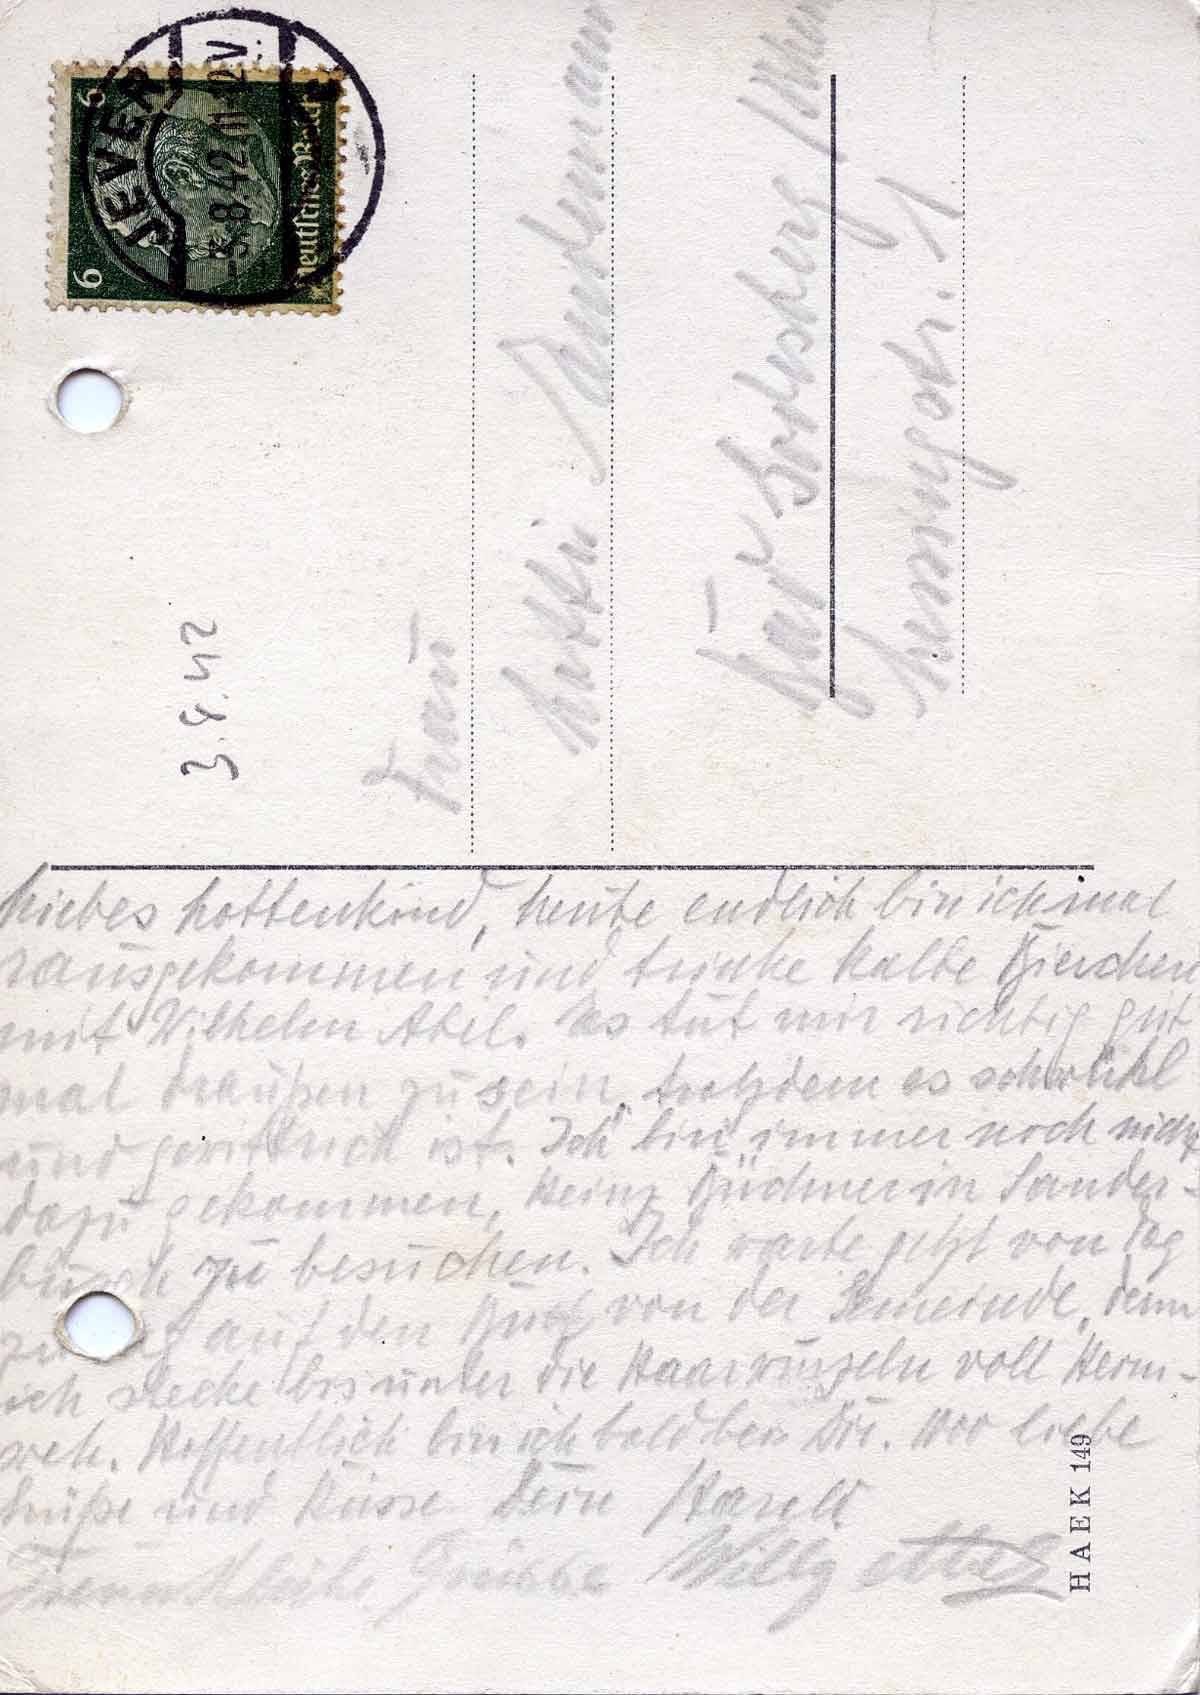 JEVER
-3.8.42.11-12V
6 6
Deutsches Reich
3.8.42
Frau
Lotte
Bad Godesberg / Rhein
str. 1
Liebes Lottenkind, heute endlich bin ich mal
rausgekommen und trinke kalte Bierchen
mit Wilhelm Abel. Es tut mir richtig gut
mal draußen zu sein, trotzdem es schwühl
und gewittrich ist. Ich bin immer noch nicht
dazu gekommen, Heinz Büchner in Sander-
busch zu besuchen. Ich warte jetzt von Tag
zu Tag auf den von der Gemeinde, denn
ich stecke bis unter die Haarwurzeln voll Heim-
weh. Hoffentlich bin ich bald bei Dir. liebe
Grüße und Küsse Dein Harald
Freundliche Grüsse Willy Abel
HAEK 149